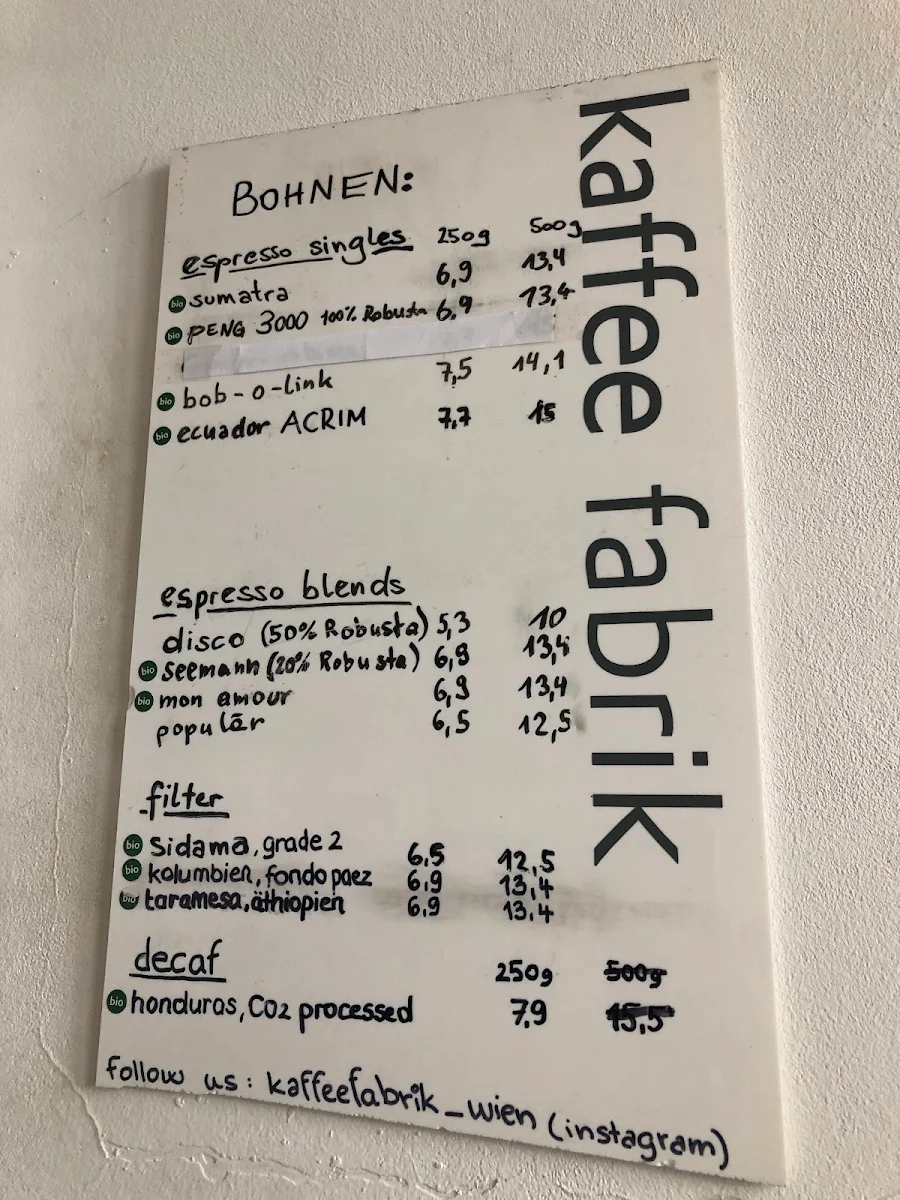 kaffee fabrik
BOHNEN:
espresso singles 250g 500g
bio sumatra 6,9 13,4
bio PENG 3000 100% Robusta 6,9 13,4
bio bob-o-link 7,5 14,1
bio ecuador ACRIM 7,7 15
espresso blends
disco (50% Robusta) 5,3 10
bio seemann (20% Robusta) 6,9 13,4
bio mon amour 6,9 13,4
populär 6,5 12,5
filter
bio Sidama, grade 2 6,5 12,5
bio kolumbien, fondo paez 6,9 13,4
bio taramesa, äthiopien 6,9 13,4
decaf 250g 500g
bio honduras, CO2 processed 7,9 15,5
follow us: kaffeefabrik_wien (instagram)